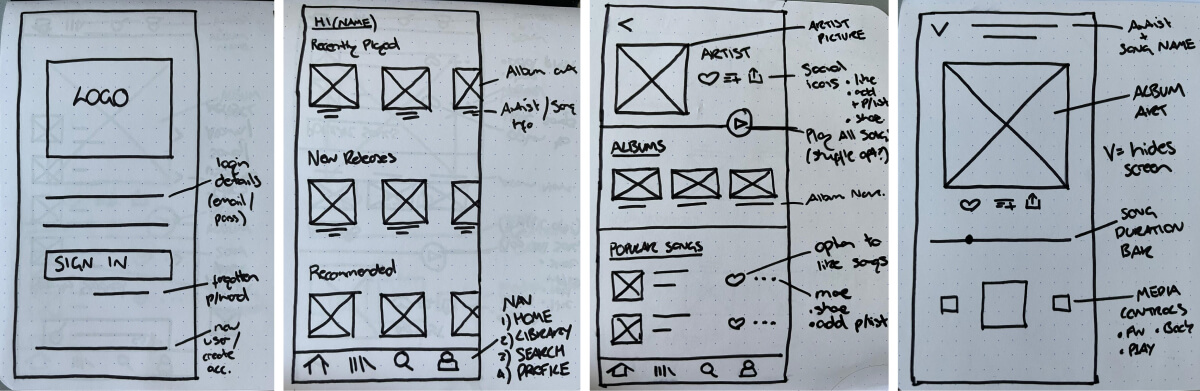 LOGO
login
details
(email/
pass)
SIGN IN
forgotten
p/word
new
user/
create
acc.
HI (NAME)
Recently Played
Album art
Artist / Song
info
New Releases
Recommended
NAV
1) HOME
2) LIBRARY
3) SEARCH
4) PROFILE
<
ARTIST
PICTURE
ARTIST
Social
icons
• like
• add
+ P/list
• share
Play All Songs
(shuffle opt?)
ALBUMS
Album Name.
POPULAR SONGS
option to
like songs
more
• share
• add p/list
V
Artist
+
SONG NAME
ALBUM
ART
V = hides
screen
SONG
DURATION
BAR
MEDIA
CONTROLS
• Fw • Back
• PLAY